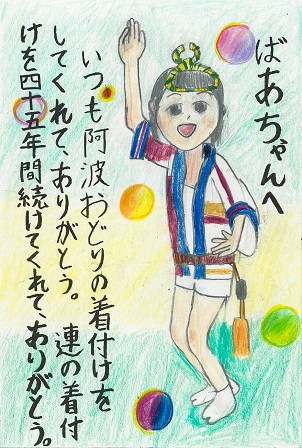 ばあちゃんへ
いつも阿波おどりの着付けを
してくれて、ありがとう。 連の着付
けを四十五年間続けてくれて、ありがとう。